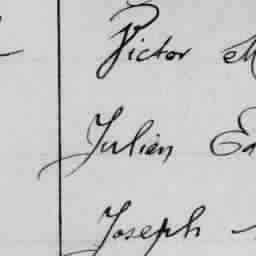 Victor
Julien
Joseph